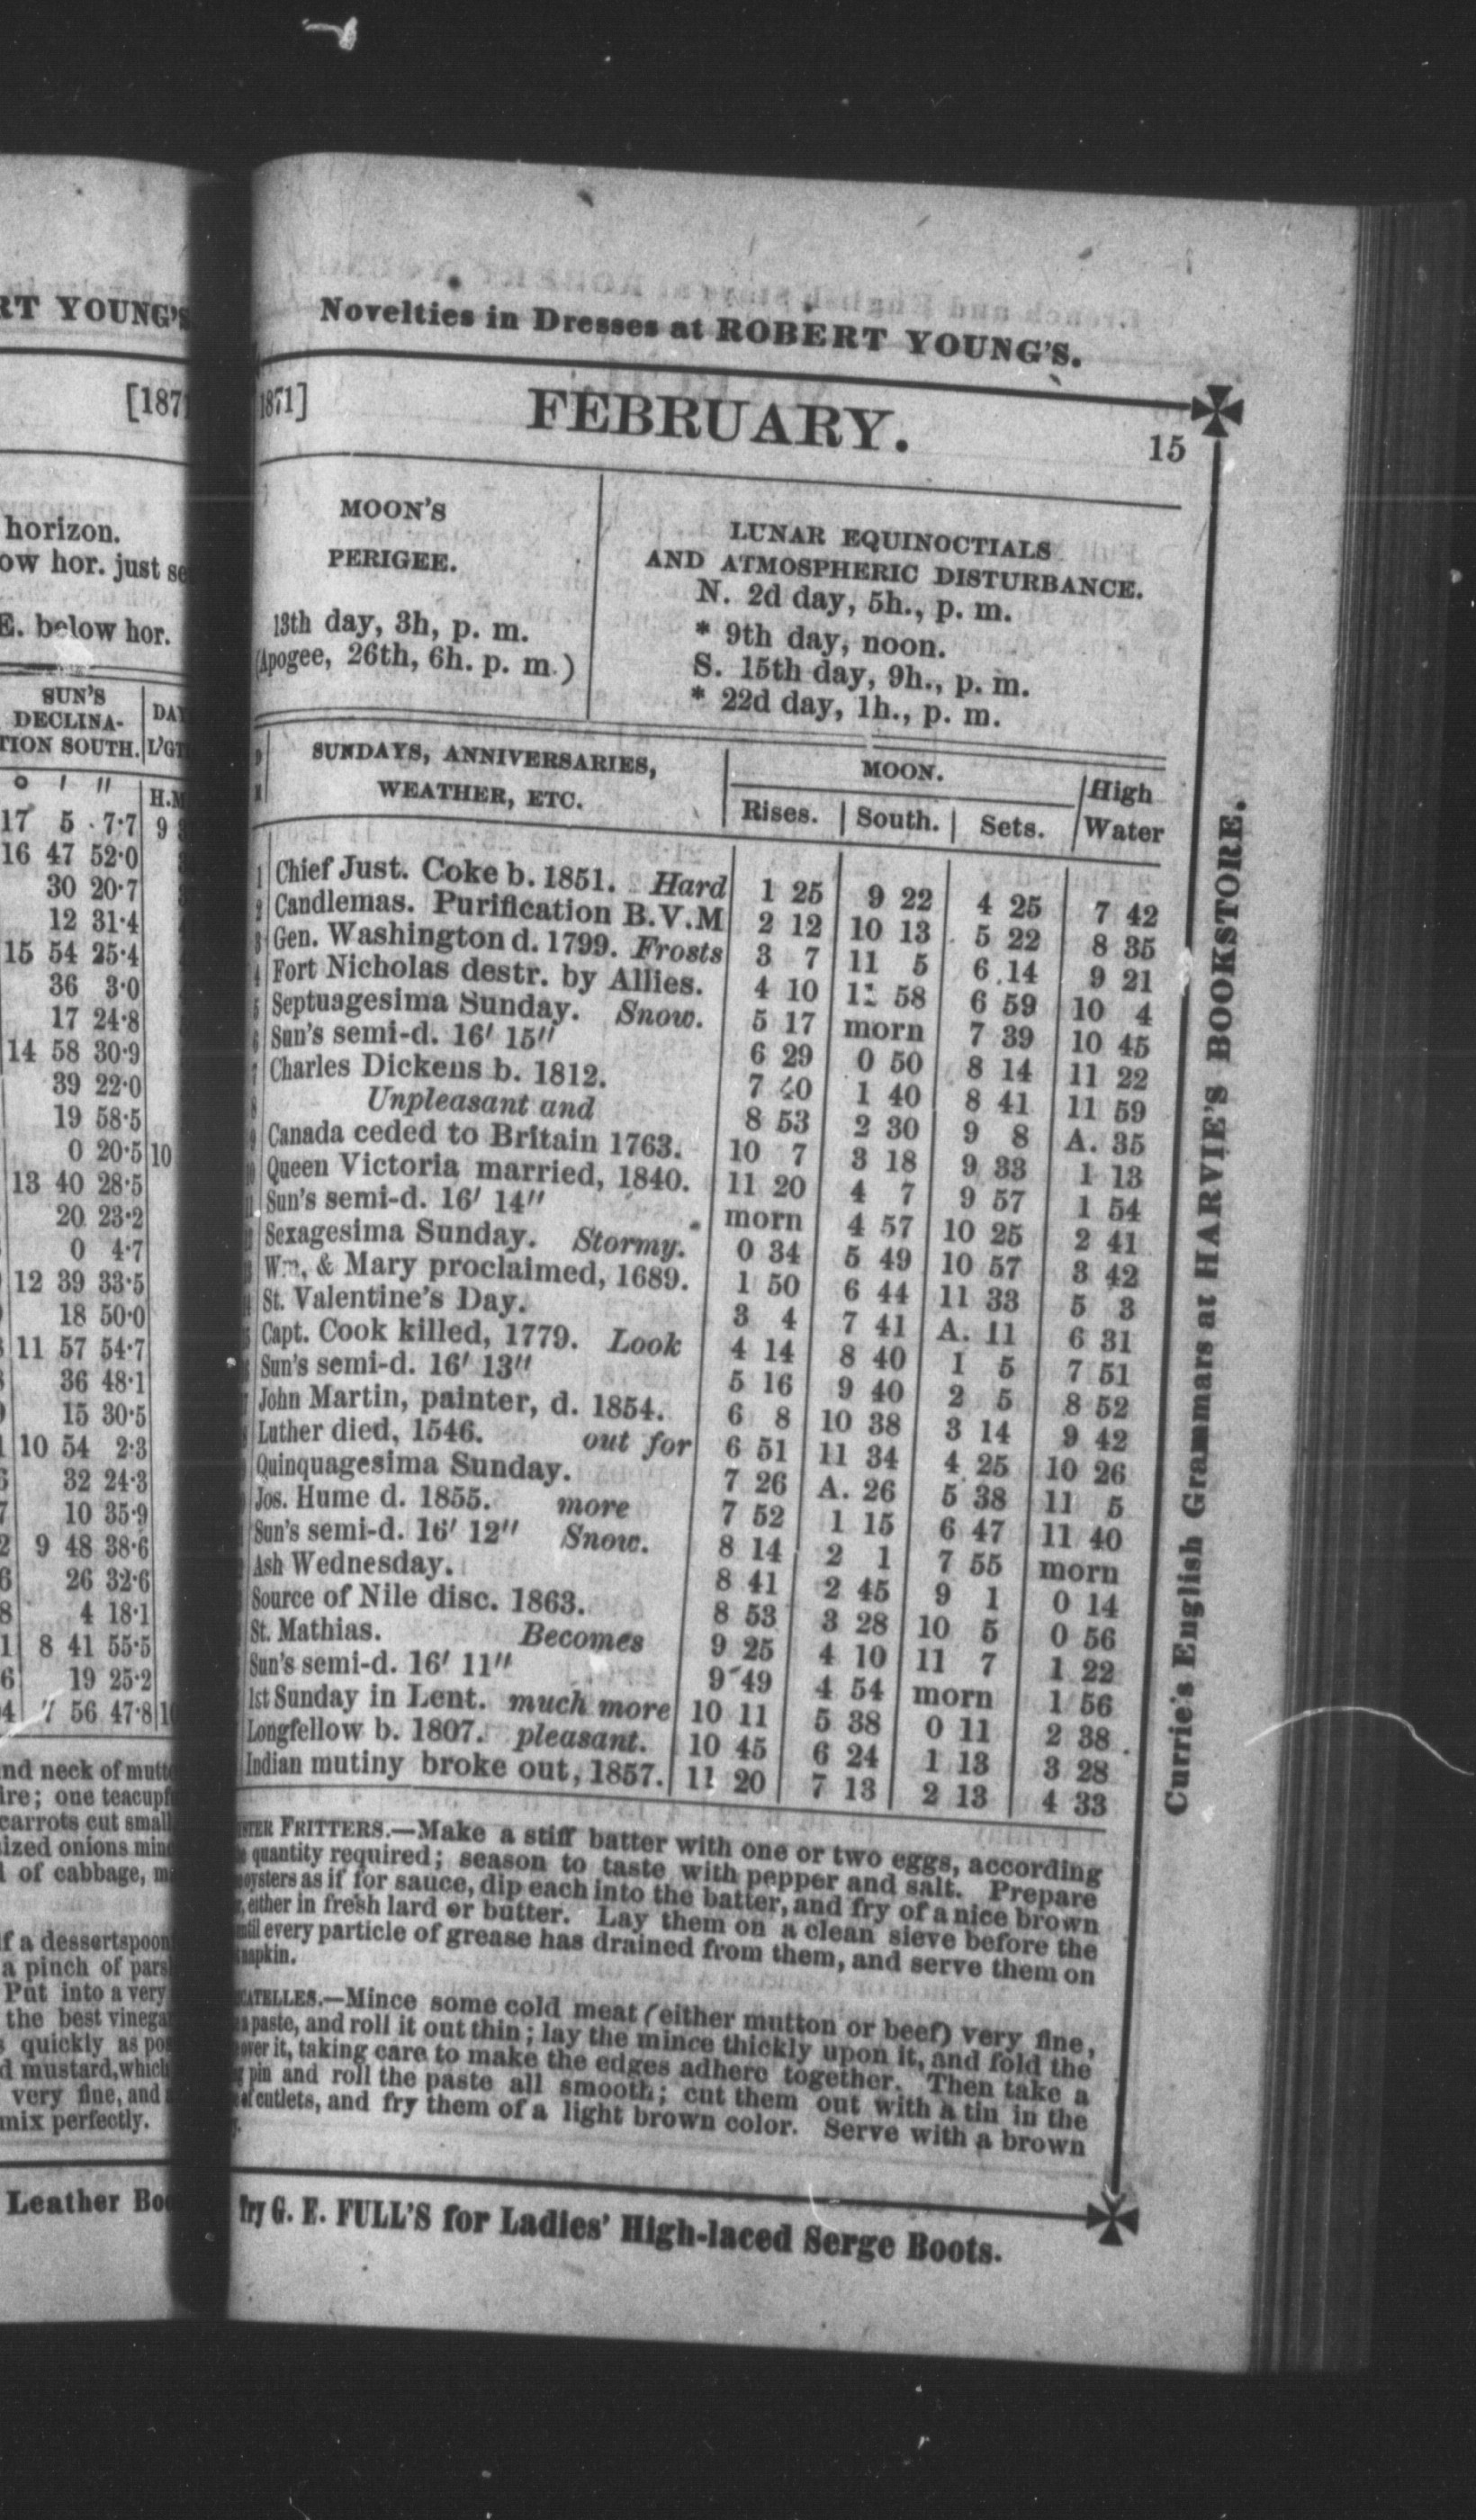 RT YOUNG'S
[1871
horizon.
ow hor. just se
E. below hor.
SUN'S
DECLINA-
TION SOUTH.
DAY
L'GT
° ' "
H.M
17 5 7·7 9
16 47 52·0
30 20·7
12 31·4
15 54 25·4
36 3·0
17 24·8
14 58 30·9
39 22·0
19 58·5
0 20·5 10
13 40 28·5
20 23·2
0 4·7
12 39 33·5
18 50·0
11 57 54·7
36 48·1
15 30·5
10 54 2·3
32 24·3
10 35·9
9 48 38·6
26 32·6
4 18·1
8 41 55·5
19 25·2
7 56 47·8
nd neck of mutt
ire; one teacupf
carrots cut small
ized onions min
l of cabbage, m
f a dessertspoon
a pinch of pars
Put into a very
the best vinega
s quickly as po
d mustard, which
very fine, and
mix perfectly.
Leather Boo
Novelties in Dresses at ROBERT YOUNG'S.
1871] FEBRUARY. 15
MOON'S
PERIGEE.
13th day, 3h, p. m.
(Apogee, 26th, 6h. p. m.)
LUNAR EQUINOCTIALS
AND ATMOSPHERIC DISTURBANCE.
N. 2d day, 5h., p. m.
* 9th day, noon.
S. 15th day, 9h., p. m.
* 22d day, 1h., p. m.
SUNDAYS, ANNIVERSARIES,
WEATHER, ETC.
MOON.
Rises. South. Sets.
High
Water
1 Chief Just. Coke b. 1851. Hard 1 25 9 22 4 25 7 42
2 Candlemas. Purification B.V.M 2 12 10 13 5 22 8 35
3 Gen. Washington d. 1799. Frosts 3 7 11 5 6 14 9 21
4 Fort Nicholas destr. by Allies. 4 10 11 58 6 59 10 4
5 Septuagesima Sunday. Snow. 5 17 morn 7 39 10 45
6 Sun's semi-d. 16' 15" 6 29 0 50 8 14 11 22
7 Charles Dickens b. 1812. 7 40 1 40 8 41 11 59
8 Unpleasant and 8 53 2 30 9 8 A. 35
9 Canada ceded to Britain 1763. 10 7 3 18 9 33 1 13
10 Queen Victoria married, 1840. 11 20 4 7 9 57 1 54
Sun's semi-d. 16' 14" morn 4 57 10 25 2 41
Sexagesima Sunday. Stormy. 0 34 5 49 10 57 3 42
Wm. & Mary proclaimed, 1689. 1 50 6 44 11 33 5 3
St. Valentine's Day. 3 4 7 41 A. 11 6 31
Capt. Cook killed, 1779. Look 4 14 8 40 1 5 7 51
Sun's semi-d. 16' 13" 5 16 9 40 2 5 8 52
John Martin, painter, d. 1854. 6 8 10 38 3 14 9 42
Luther died, 1546. out for 6 51 11 34 4 25 10 26
Quinquagesima Sunday. 7 26 A. 26 5 38 11 5
Jos. Hume d. 1855. more 7 52 1 15 6 47 11 40
Sun's semi-d. 16' 12" Snow. 8 14 2 1 7 55 morn
Ash Wednesday. 8 41 2 45 9 1 0 14
Source of Nile disc. 1863. 8 53 3 28 10 5 0 56
St. Mathias. Becomes 9 25 4 10 11 7 1 22
Sun's semi-d. 16' 11" 9 49 4 54 morn 1 56
1st Sunday in Lent. much more 10 11 5 38 0 11 2 38
Longfellow b. 1807. pleasant. 10 45 6 24 1 13 3 28
Indian mutiny broke out, 1857. 11 20 7 13 2 13 4 33
FRITTERS.—Make a stiff batter with one or two eggs, according
quantity required; season to taste with pepper and salt. Prepare
oysters as if for sauce, dip each into the batter, and fry of a nice brown
either in fresh lard or butter. Lay them on a clean sieve before the
until every particle of grease has drained from them, and serve them on
napkin.
CATELLES.—Mince some cold meat (either mutton or beef) very fine,
a paste, and roll it out thin; lay the mince thickly upon it, and fold the
over it, taking care to make the edges adhere together. Then take a
pin and roll the paste all smooth; cut them out with a tin in the
of cutlets, and fry them of a light brown color. Serve with a brown
Try G. F. FULL'S for Ladies' High-laced Serge Boots.
Currie's English Grammars at HARVIE'S BOOKSTORE.